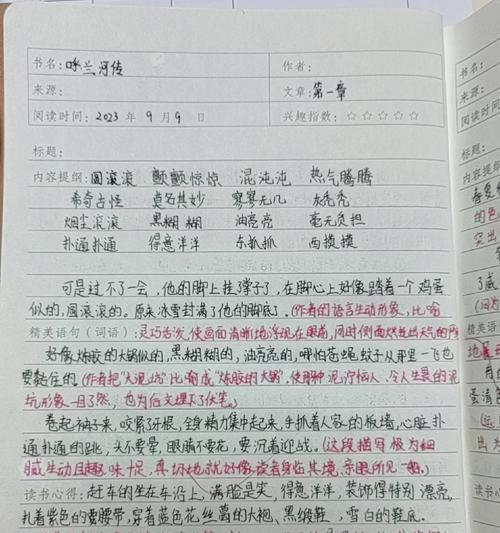 书名:呼兰河传
作者:
来源:
文章:第一章
阅读时间:2023 年 9 月 9 日
兴趣指数:☆☆☆☆☆
标题:
内容提纲:圆滚滚 颤颤惊惊 混沌沌 热气腾腾
希奇古怪 莫名其妙 寥寥无几 灰秃秃
烟尘滚滚 黑糊糊 油亮亮 毫无负担
扑通扑通 得意洋洋 东抓抓 西摸摸
可是过不了一会,他的脚上挂了掌子了,在脚心上好像踏着一个鸡蛋
似的,圆滚滚的。原来冰雪封满了他的脚底了。(作者的语言生动形象,比喻
精美语句(词语):灵巧活泼,使画面清晰地浮现在眼前,同时侧面烘托出天气的严
好像炼胶的大锅似的,黑糊糊的,油亮亮的,哪怕苍蝇蚊子从那里一飞也
要黏住的。(作者把“大泥坑”比喻成“炼胶的大锅”,使那种泥泞恼人、令人生畏的泥
坑形象一目了然,也为后文埋下了伏笔。
卷起裤子来,咬紧了牙根,全身的精力集中起来,手抓着人家的板墙,心脏扑
通扑通的跳,头不要晕,眼睛不要花,要沉着迎战。(这段描写极为细
腻,生动且趣味十足,真切地就好像读者身临其境,亲眼所见一般。)
读书心得:赶车的坐在车沿上,满脸是笑,得意洋洋,装饰得特别漂亮,
扎着紫色的腰带,穿着蓝色花丝葛的大袍、黑缎鞋,雪白的鞋底。
书名:
来源:
阅读时
标题:
内容提
的色
突出
了底